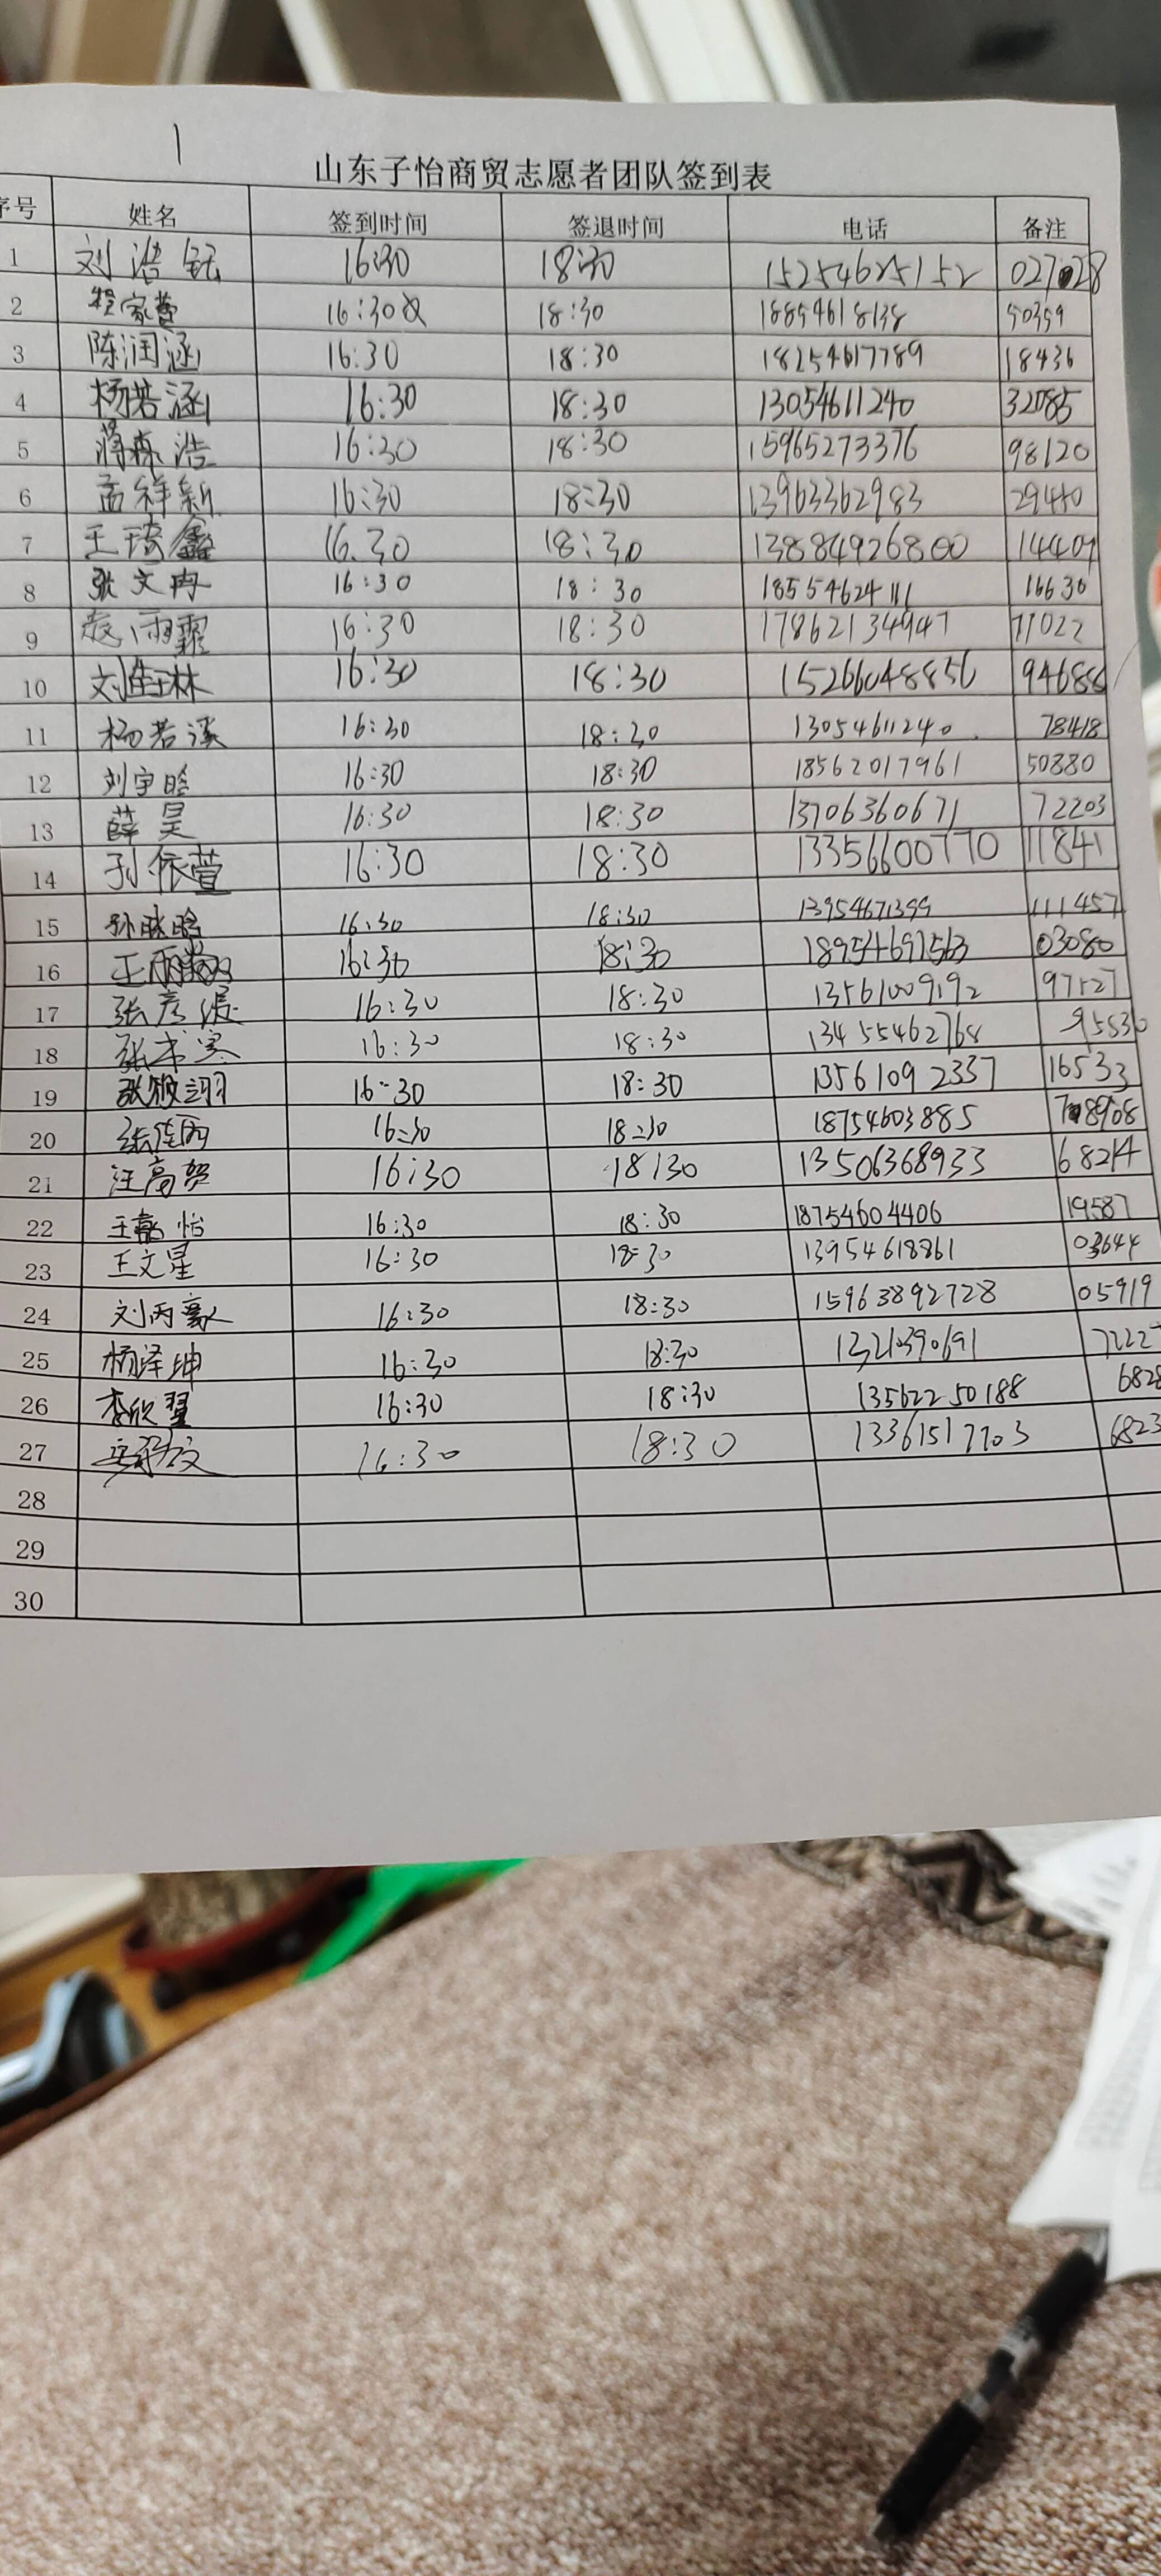 1
山东子怡商贸志愿者团队签到表
序号 姓名 签到时间 签退时间 电话 备注
1 刘浩钰 16:30 18:30 15254625152 027028
2 程家萱 16:30 18:30 18854618138 50359
3 陈润涵 16:30 18:30 18254617789 18436
4 杨若涵 16:30 18:30 13054611240 32085
5 蒋森浩 16:30 18:30 15965273376 98120
6 孟祥新 16:30 18:30 13963362983 29440
7 王琦鑫 16.30 18:30 13884926800 14409
8 张文冉 16:30 18:30 18554624111 16630
9 雨霏 16:30 18:30 17862134947 71022
10 刘 林 16:30 18:30 15266048856 94688
11 杨若溪 16:30 18:30 13054611240 78418
12 刘宇晗 16:30 18:30 18562017961 50880
13 薛昊 16:30 18:30 13706360671 72203
14 孙依萱 16:30 18:30 13356600770 11841
15 孙 晗 16:30 18:30 13954671399 111457
16 王雨 16:30 18:30 18954691563 03080
17 张彦 16:30 18:30 13561009192 97527
18 张 寒 16:30 18:30 13455462768 95536
19 张 翊 16:30 18:30 13561092337 16533
20 张佳雨 16:30 18:30 18754603885 78908
21 汪高贺 16:30 18:30 13506368933 68214
22 王 怡 16:30 18:30 18754604406 19587
23 王文星 16:30 18:30 13954618861 03644
24 刘丙豪 16:30 18:30 15963892728 05919
25 杨泽坤 16:30 18:30 7222
26 李欣翼 16:30 18:30 13562250188 682
27 16:30 18:30 13361517703 6823
28
29
30